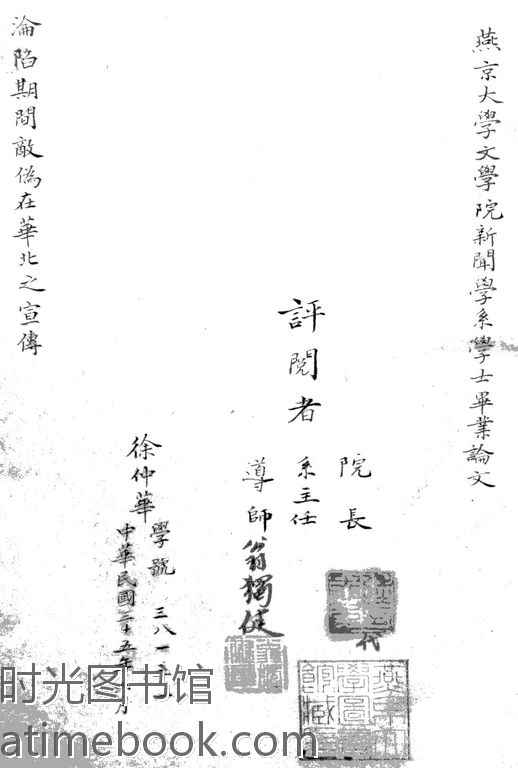 燕京大學文學院新聞學系學士畢業論文
評閱者
院長
代
系主任
導師 翁獨健
徐仲華 學號 三八一
中華民國三十五年 月
淪陷期間敵偽在華北之宣傳
时光图书馆
atimebook.com